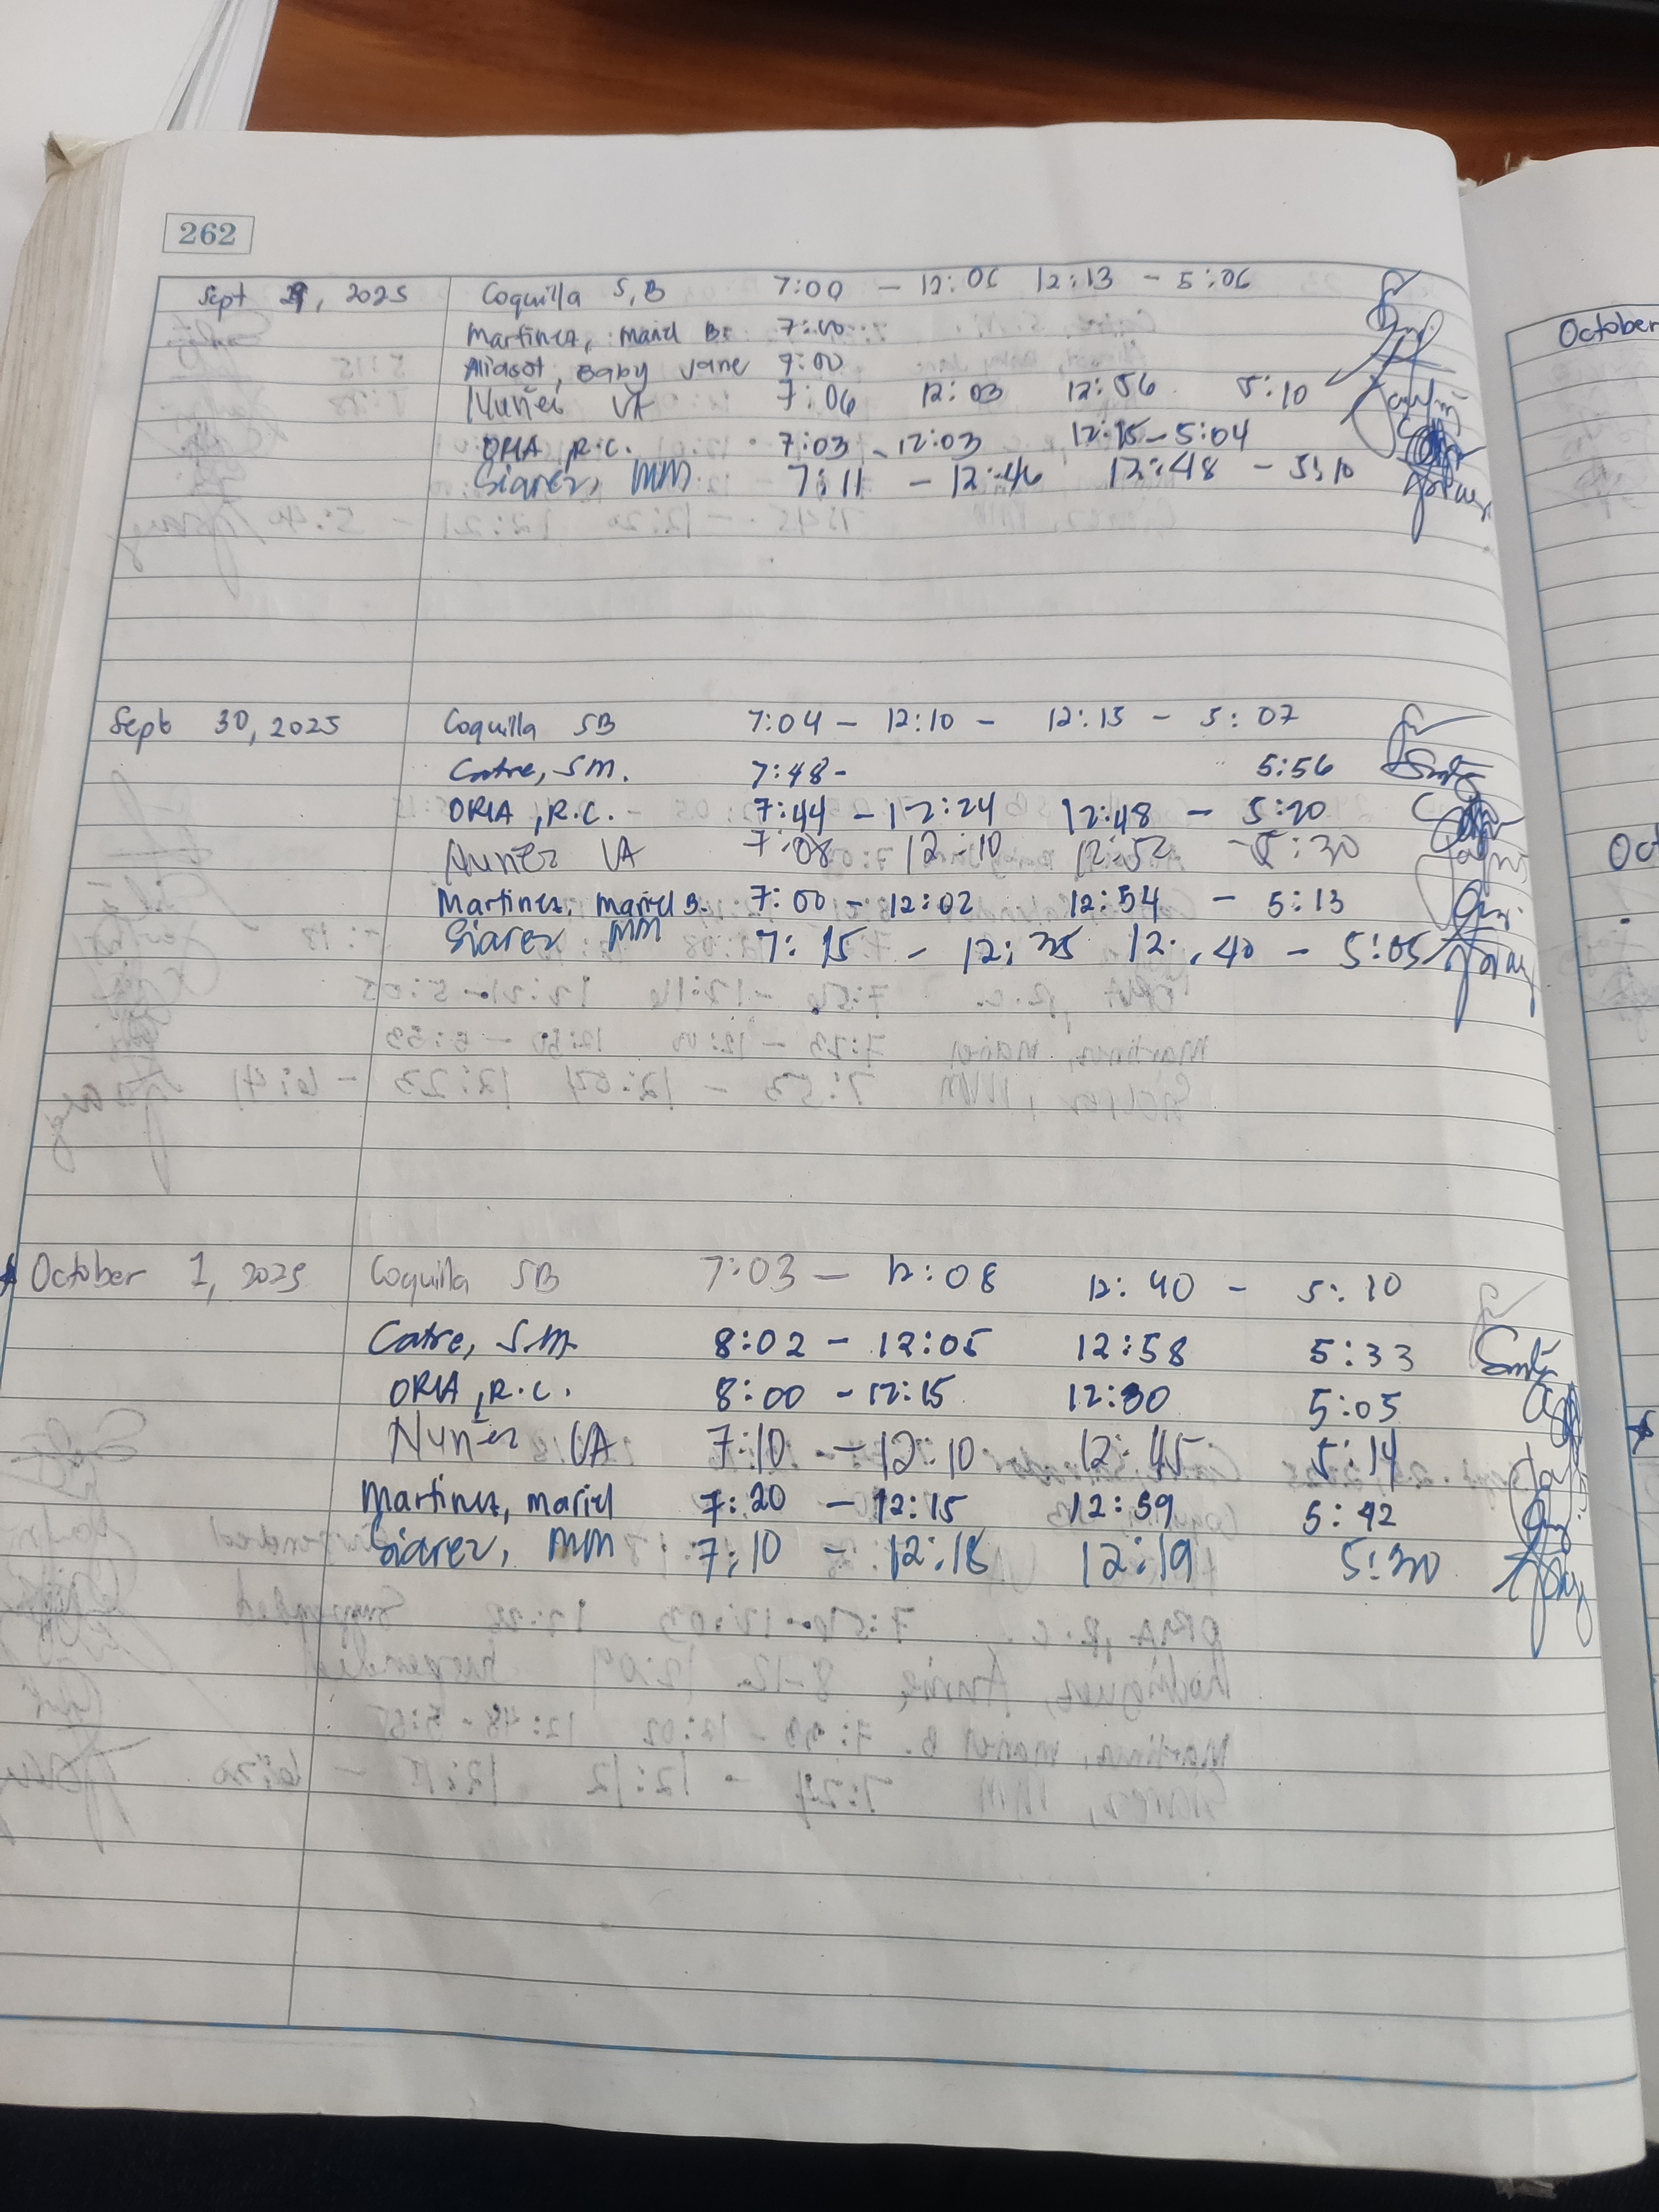 262
Sept 29, 2025 Coquilla S,B 7:00 - 12:06 12:13 - 5:06
Martinez, Mariel B. 7:00
Aliasot, Baby Jane 7:00
Nuñez VA 7:06 12:03 12:56 5:10
ORIA, R.C. 7:03 - 12:03 12:15 - 5:04
Siarez, MM 7:11 - 12:46 12:48 - 5:10
Sept 30, 2025 Coquilla SB 7:04 - 12:10 - 12:13 - 5:07
Catre, S.M. 7:48 - 5:56
ORIA, R.C. 7:44 - 12:24 12:48 - 5:20
Nuñez VA 7:08 12:10 12:52 - 5:30
Martinez, Mariel B. 7:00 - 12:02 12:54 - 5:13
Siarez MM 7:15 - 12:35 12:40 - 5:05
October 1, 2025 Coquilla SB 7:03 - 12:08 12:40 - 5:10
Catre, S.M. 8:02 - 12:05 12:58 5:33
ORIA, R.C. 8:00 - 12:15 12:30 5:05
Nuñez VA 7:10 - 12:10 12:45 5:14
Martinez, Mariel 7:20 - 12:15 12:59 5:42
Siarez, MM 7:10 - 12:18 12:19 5:30
October
Oct